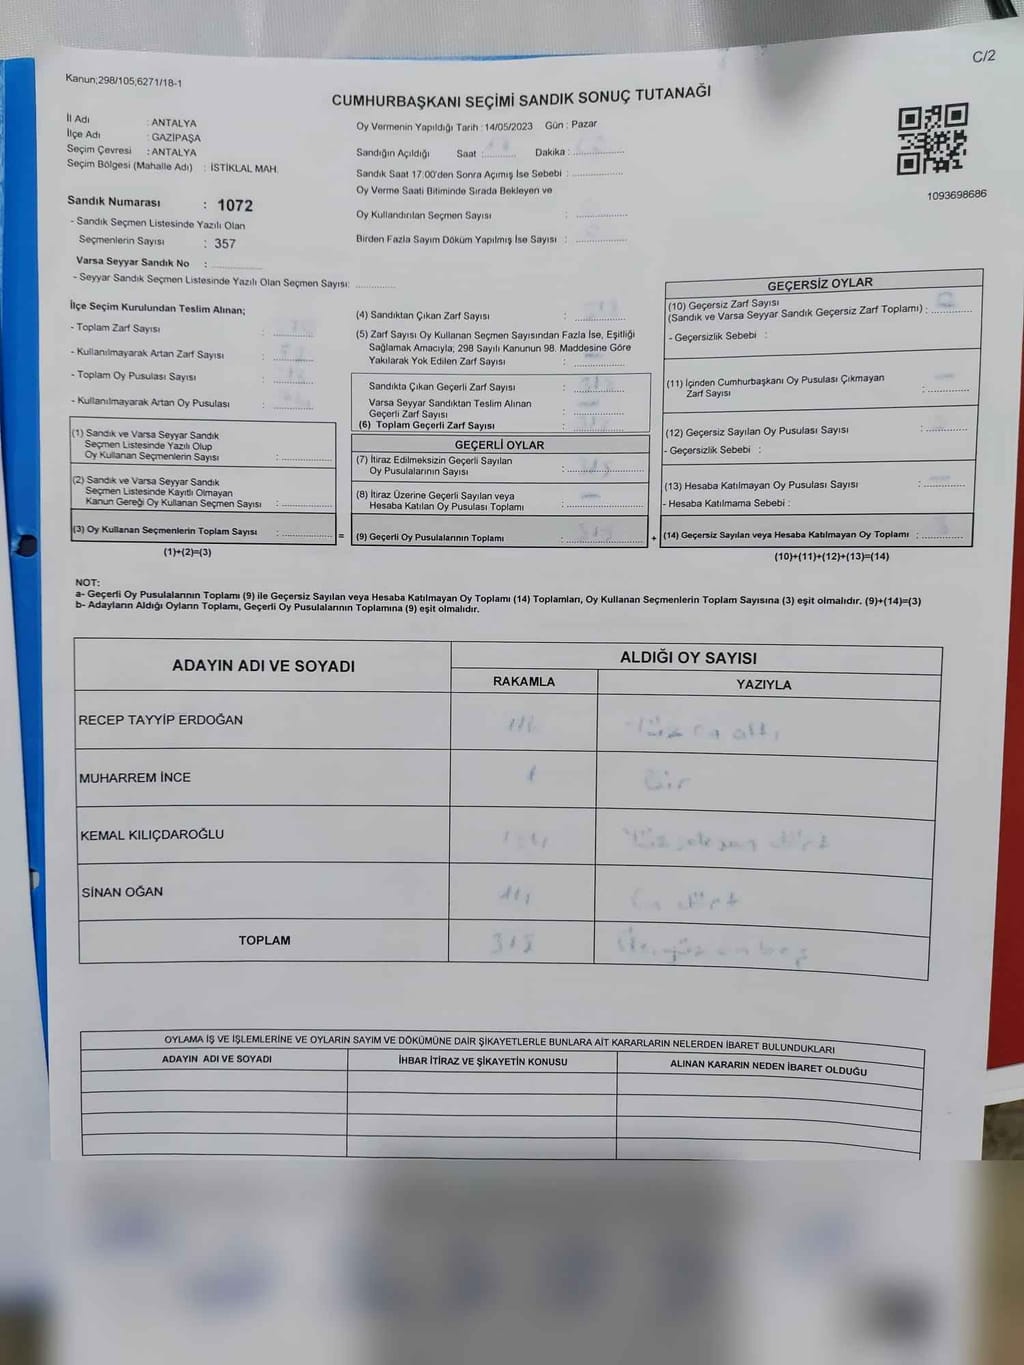 C/2
Kanun;298/105,6271/18-1
CUMHURBAŞKANI SEÇİMİ SANDIK SONUÇ TUTANAĞI
İl Adı : ANTALYA
İlçe Adı : GAZİPAŞA
Seçim Çevresi : ANTALYA
Seçim Bölgesi (Mahalle Adı) : İSTİKLAL MAH.
Sandık Numarası : 1072
- Sandık Seçmen Listesinde Yazılı Olan
Seçmenlerin Sayısı : 357
Varsa Seyyar Sandık No :
- Seyyar Sandık Seçmen Listesinde Yazılı Olan Seçmen Sayısı:
Oy Vermenin Yapıldığı Tarih : 14/05/2023 Gün : Pazar
Sandığın Açıldığı Saat : Dakika :
Sandık Saat 17:00'den Sonra Açımış İse Sebebi :
Oy Verme Saati Bitiminde Sırada Bekleyen ve
Oy Kullandırılan Seçmen Sayısı :
Birden Fazla Sayım Döküm Yapılmış İse Sayısı :
1093698686
İlçe Seçim Kurulundan Teslim Alınan;
- Toplam Zarf Sayısı :
- Kullanılmayarak Artan Zarf Sayısı :
- Toplam Oy Pusulası Sayısı :
- Kullanılmayarak Artan Oy Pusulası :
(1) Sandık ve Varsa Seyyar Sandık
Seçmen Listesinde Yazılı Olup
Oy Kullanan Seçmenlerin Sayısı :
(2) Sandık ve Varsa Seyyar Sandık
Seçmen Listesinde Kayıtlı Olmayan
Kanun Gereği Oy Kullanan Seçmen Sayısı :
(3) Oy Kullanan Seçmenlerin Toplam Sayısı : =
(1)+(2)=(3)
(4) Sandıktan Çıkan Zarf Sayısı :
(5) Zarf Sayısı Oy Kullanan Seçmen Sayısından Fazla İse, Eşitliği
Sağlamak Amacıyla; 298 Sayılı Kanunun 98. Maddesine Göre
Yakılarak Yok Edilen Zarf Sayısı :
Sandıkta Çıkan Geçerli Zarf Sayısı :
Varsa Seyyar Sandıktan Teslim Alınan
Geçerli Zarf Sayısı :
(6) Toplam Geçerli Zarf Sayısı :
GEÇERLİ OYLAR
(7) İtiraz Edilmeksizin Geçerli Sayılan
Oy Pusulalarının Sayısı : 315
(8) İtiraz Üzerine Geçerli Sayılan veya
Hesaba Katılan Oy Pusulası Toplamı :
(9) Geçerli Oy Pusulalarının Toplamı : 315 +
GEÇERSİZ OYLAR
(10) Geçersiz Zarf Sayısı
(Sandık ve Varsa Seyyar Sandık Geçersiz Zarf Toplamı) :
- Geçersizlik Sebebi :
(11) İçinden Cumhurbaşkanı Oy Pusulası Çıkmayan
Zarf Sayısı :
(12) Geçersiz Sayılan Oy Pusulası Sayısı :
- Geçersizlik Sebebi :
(13) Hesaba Katılmayan Oy Pusulası Sayısı :
- Hesaba Katılmama Sebebi :
(14) Geçersiz Sayılan veya Hesaba Katılmayan Oy Toplamı :
(10)+(11)+(12)+(13)=(14)
NOT:
a- Geçerli Oy Pusulalarının Toplamı (9) ile Geçersiz Sayılan veya Hesaba Katılmayan Oy Toplamı (14) Toplamları, Oy Kullanan Seçmenlerin Toplam Sayısına (3) eşit olmalıdır. (9)+(14)=(3)
b- Adayların Aldığı Oyların Toplamı, Geçerli Oy Pusulalarının Toplamına (9) eşit olmalıdır.
ADAYIN ADI VE SOYADI ALDIĞI OY SAYISI
RAKAMLA YAZIYLA
RECEP TAYYİP ERDOĞAN Yüz on altı
MUHARREM İNCE 1 Bir
KEMAL KILIÇDAROĞLU Yüz seksen dört
SİNAN OĞAN On dört
TOPLAM 315 Üçyüz on beş
OYLAMA İŞ VE İŞLEMLERİNE VE OYLARIN SAYIM VE DÖKÜMÜNE DAİR ŞİKAYETLERLE BUNLARA AİT KARARLARIN NELERDEN İBARET BULUNDUKLARI
ADAYIN ADI VE SOYADI İHBAR İTİRAZ VE ŞİKAYETİN KONUSU ALINAN KARARIN NEDEN İBARET OLDUĞU